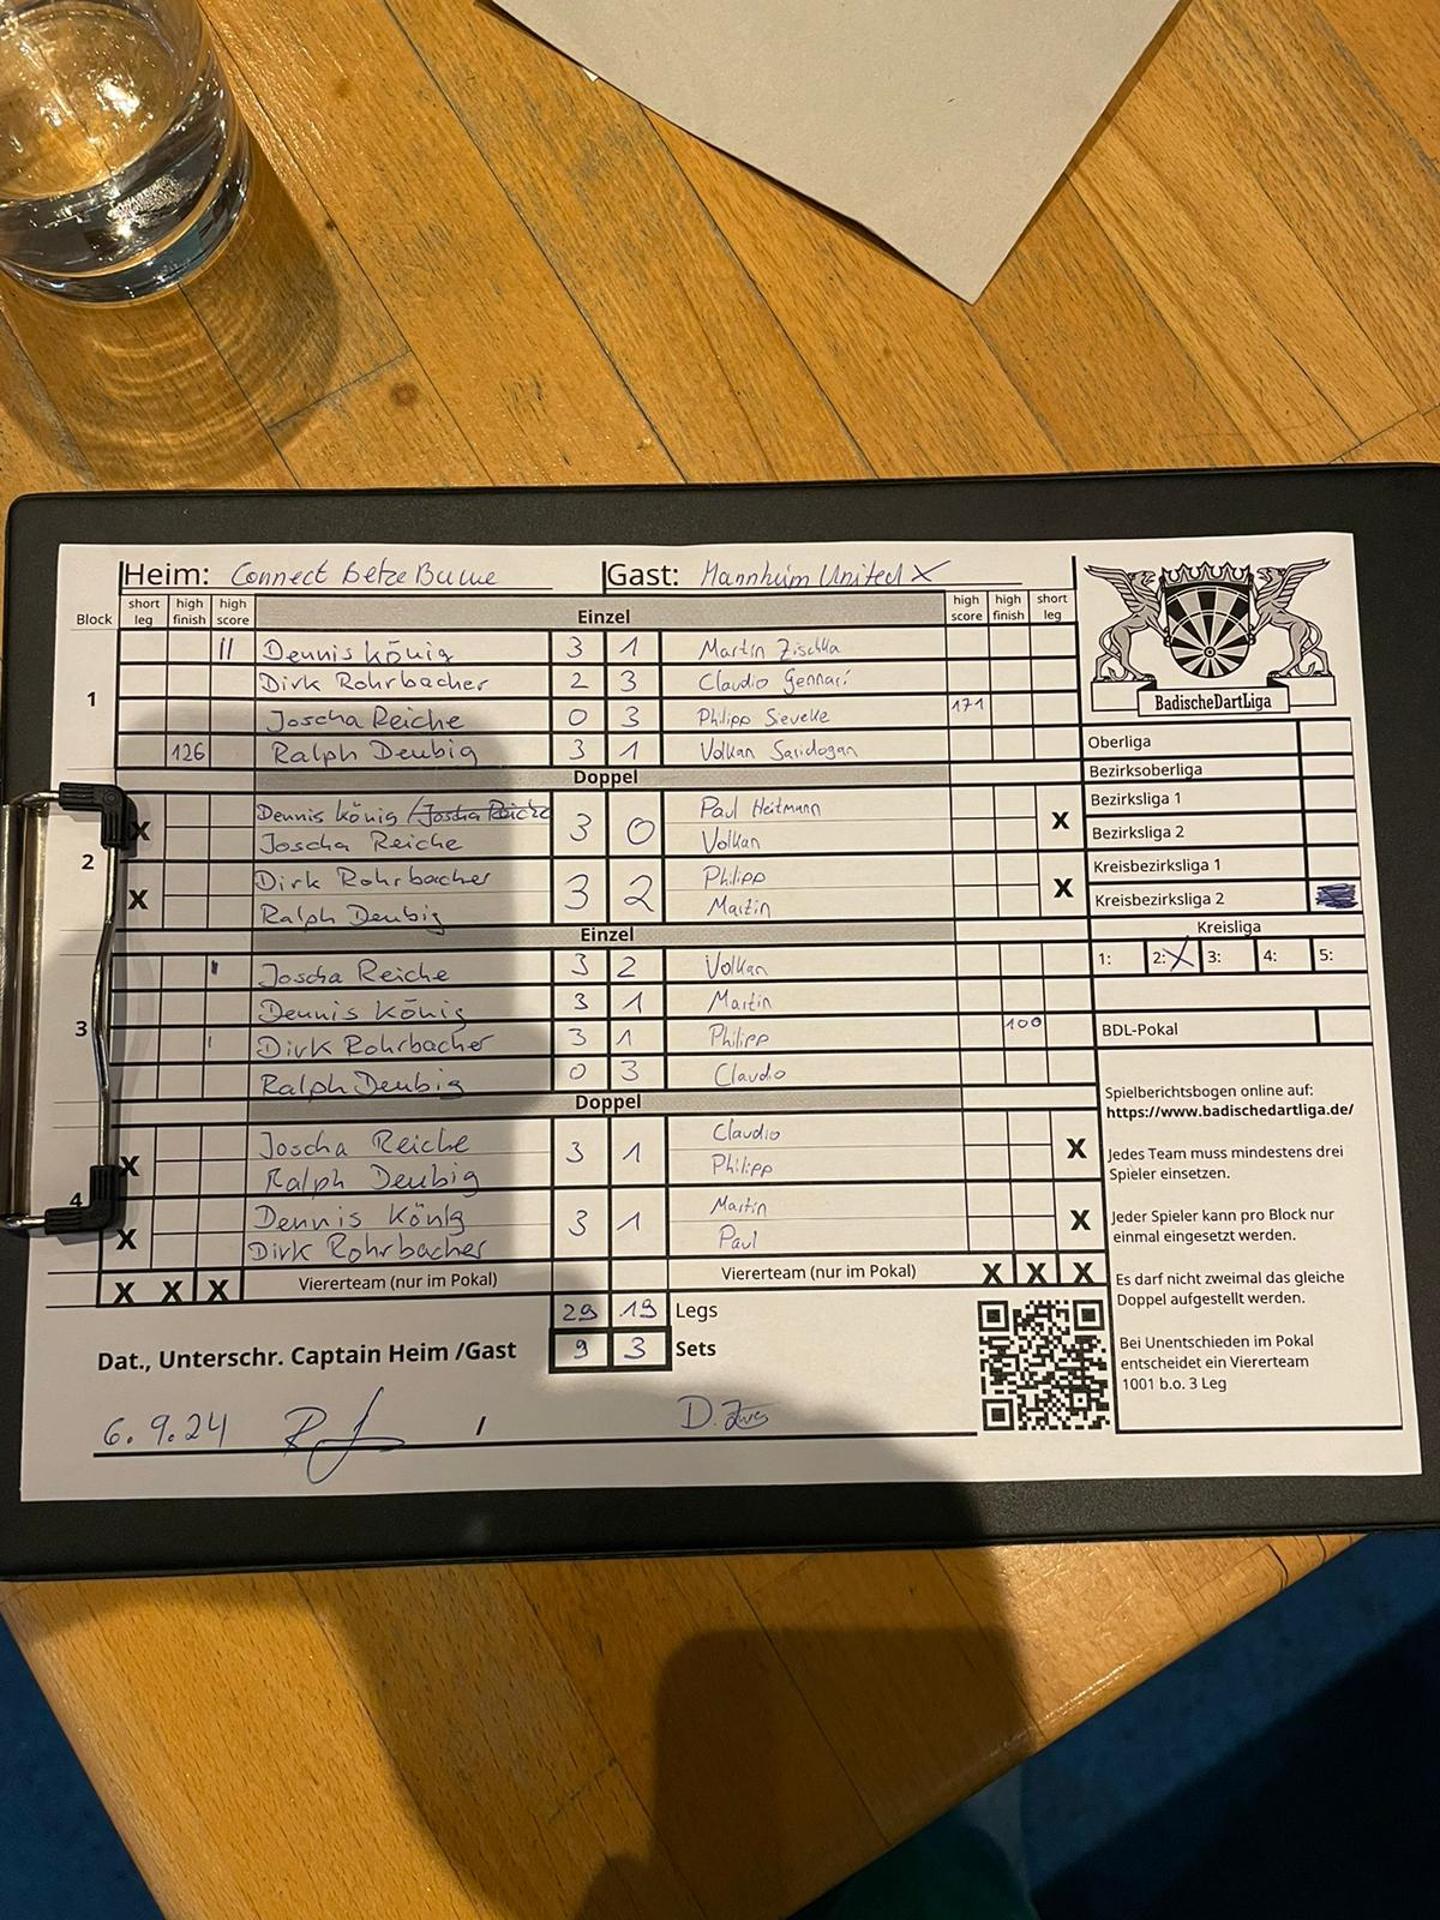 Heim: Connect Betze Buwe Gast: Mannheim United X
Block short leg high finish high score Einzel high score high finish short leg
1
|| Dennis König 3 1 Martin Zischka
Dirk Rohrbacher 2 3 Claudio Gennari
Joscha Reiche 0 3 Philipp Sieveke 171
126 Ralph Deubig 3 1 Volkan Saridogan
Doppel
2
X Dennis König / Joscha Reiche 3 0 Paul Heitmann X
Joscha Reiche Volkan
X Dirk Rohrbacher 3 2 Philipp X
Ralph Deubig Martin
Einzel
3
| Joscha Reiche 3 2 Volkan
Dennis König 3 1 Martin
| Dirk Rohrbacher 3 1 Philipp 100
Ralph Deubig 0 3 Claudio
Doppel
4
X Joscha Reiche 3 1 Claudio X
Ralph Deubig Philipp
X Dennis König 3 1 Martin X
Dirk Rohrbacher Paul
X X X Viererteam (nur im Pokal) Viererteam (nur im Pokal) X X X
29 19 Legs
9 3 Sets
Dat., Unterschr. Captain Heim /Gast
6.9.24 / D.
BadischeDartLiga
Oberliga
Bezirksoberliga
Bezirksliga 1
Bezirksliga 2
Kreisbezirksliga 1
Kreisbezirksliga 2
Kreisliga
1: 2: X 3: 4: 5:
BDL-Pokal
Spielberichtsbogen online auf:
https://www.badischedartliga.de/
Jedes Team muss mindestens drei
Spieler einsetzen.
Jeder Spieler kann pro Block nur
einmal eingesetzt werden.
Es darf nicht zweimal das gleiche
Doppel aufgestellt werden.
Bei Unentschieden im Pokal
entscheidet ein Viererteam
1001 b.o. 3 Leg